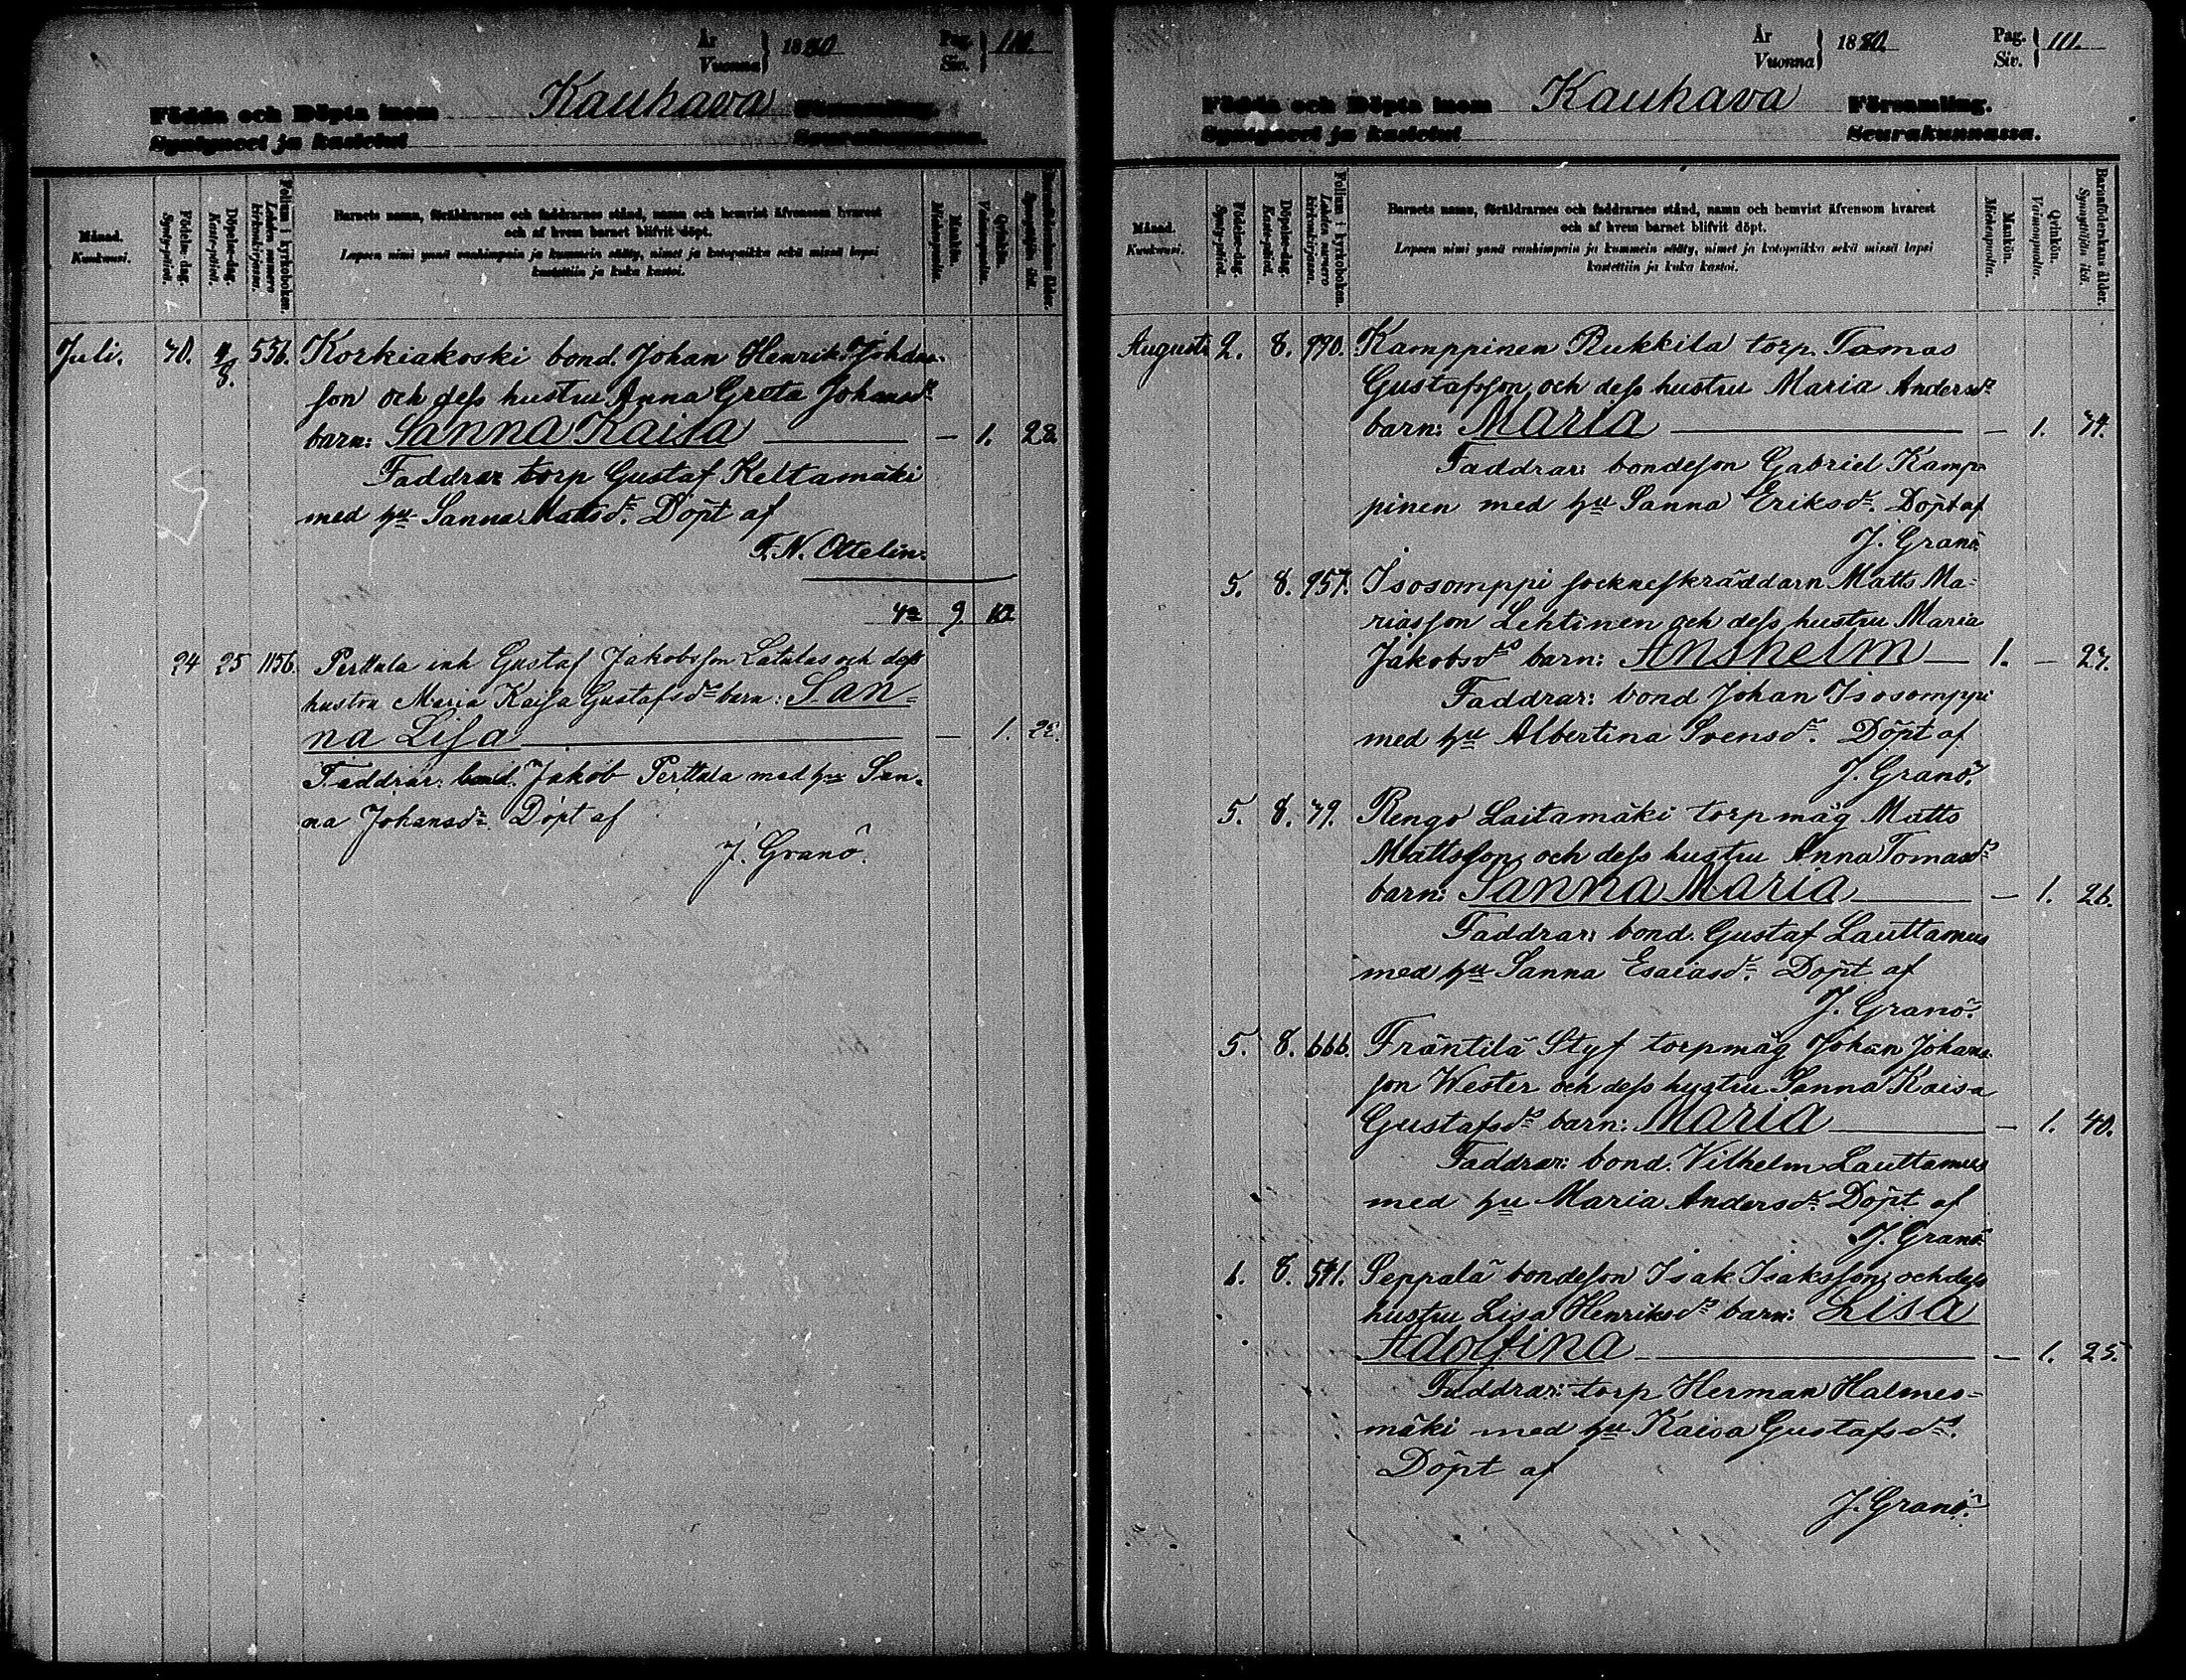 År
Vuonna } 1880 Pag.
Siv. } 110.
Födda och Döpta inom Kauhava Församling.
Syntyneet ja kastetut Seurakunnassa.
Månad.
Kuukausi.
Födelse-dag.
Synty-päivä.
Döpelse-dag.
Kaste-päivä.
Folium i kyrkoboken.
Lehden numero kirkonkirjassa.
Barnets namn, föräldrarnes och faddrarnes stånd, namn och hemvist äfvensom hvarest
och af hvem barnet blifvit döpt.
Lapsen nimi ynnä vanhimpain ja kummein sääty, nimet ja kotopaikka sekä missä lapsi
kastettiin ja kuka kastoi.
Mankön.
Miehenpuolia.
Qvinkön.
Vaimonpuolia.
Barnföderskans ålder.
Synnyttäjän ikä.
Juli. 30. 4/8. 556. Korkiakoski bond. Johan Henrik Johans-
son och dess hustru Anna Greta Johansdr
barn: Sanna Kaisa — 1. 28.
Faddrar torp Gustaf Keltamäki
med hu Sanna Mattsdr. Döpt af
F. N. Ottelin.
9.
24 25 1156. Perttula inh Gustaf Jakobsson Latulas och dess
hustru Maria Kaisa Gustafsdr barn: San-
na Lisa — 1.
Faddrar: bond. Jakob Perttula med hu San-
na Johansdr. Döpt af
J. Granö.
År
Vuonna } 1880. Pag.
Siv. } 111.
Födda och Döpta inom Kauhava Församling.
Syntyneet ja kastetut Seurakunnassa.
Månad.
Kuukausi.
Födelse-dag.
Synty-päivä.
Döpelse-dag.
Kaste-päivä.
Folium i kyrkoboken.
Lehden numero kirkonkirjassa.
Barnets namn, föräldrarnes och faddrarnes stånd, namn och hemvist äfvensom hvarest
och af hvem barnet blifvit döpt.
Lapsen nimi ynnä vanhimpain ja kummein sääty, nimet ja kotopaikka sekä missä lapsi
kastettiin ja kuka kastoi.
Mankön.
Miehenpuolia.
Qvinkön.
Vaimonpuolia.
Barnföderskans ålder.
Synnyttäjän ikä.
Augusti 2. 8. 990. Kamppinen Rukkila torp. Tomas
Gustafsson och dess hustru Maria Andersdr
barn: Maria — 1. 34.
Faddrar: bondeson Gabriel Kamp-
pinen med hu Sanna Eriksdr. Döpt af
J. Granö.
5. 8. 957. Isosomppi sockneskräddarn Matts Ma-
riasson Lehtinen och dess hustru Maria
Jakobsdrs barn: Anshelm 1. — 27.
Faddrar: bond Johan Isosomppi
med hu Albertina Svensdr. Döpt af
J. Granö.
5. 8. 39. Rengo Laitamäki torpmåg Matts
Mattsson och dess hustru Anna Tomasdr
barn: Sanna Maria — 1. 26.
Faddrar: bond. Gustaf Lauttamus
med hu Sanna Esaiasdr. Döpt af
J. Granö.
5. 8. 666. Fräntilä Styf torpmåg Johan Johans-
son Wester och dess hustru Sanna Kaisa
Gustafsdrs barn: Maria — 1. 40.
Faddrar: bond. Vilhelm Lauttamus
med hu Maria Andersdr. Döpt af
J. Granö.
6. 8. 541. Seppälä bondeson Isak Isaksson och dess
hustru Lisa Henriksdrs barn: Lisa
Adolfina — 1. 25.
Faddrar: torp Herman Halmes-
mäki med hu Kaisa Gustafsdr.
Döpt af
J. Granö.